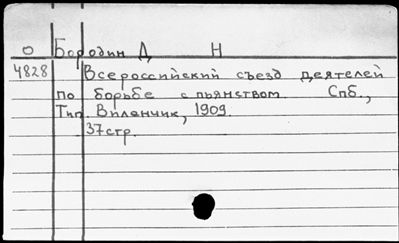 О Бородин Д Н
4828 Всероссийский съезд деятелей
по борьбе с пьянством. Спб.,
Тип. Виленчик, 1909.
37стр.